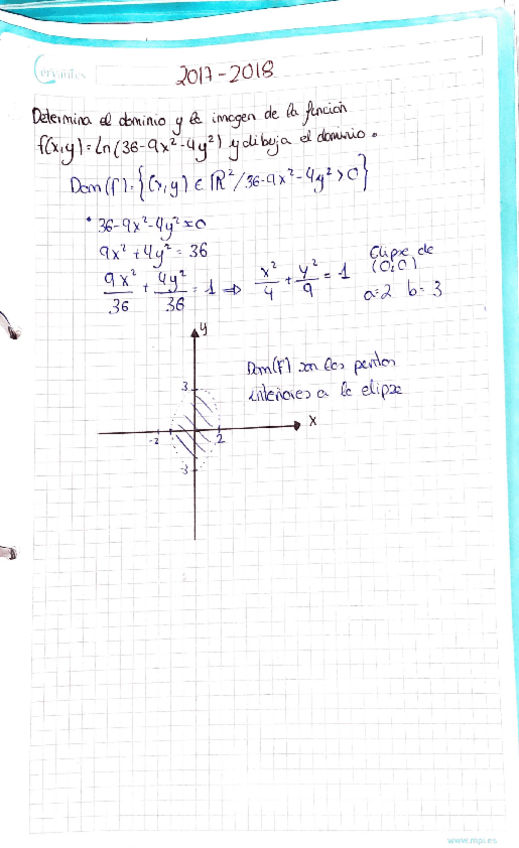 Cervantes
2017-2018
Determina el dominio y la imagen de la función
f(x,y)=Ln(36-9x²-4y²) y dibuja el dominio.
Dom(f)={(x,y)∈ℝ²/36-9x²-4y²>0}
• 36-9x²-4y²=0
9x²+4y²=36
9x²/36 + 4y²/36 = 1 ⇒ x²/4 + y²/9 = 1
Elipse de
(0,0)
a=2 b=3
y
Dom(f) son los puntos
interiores a la elipse
3
x
-2 2
-3
www.mpi.es